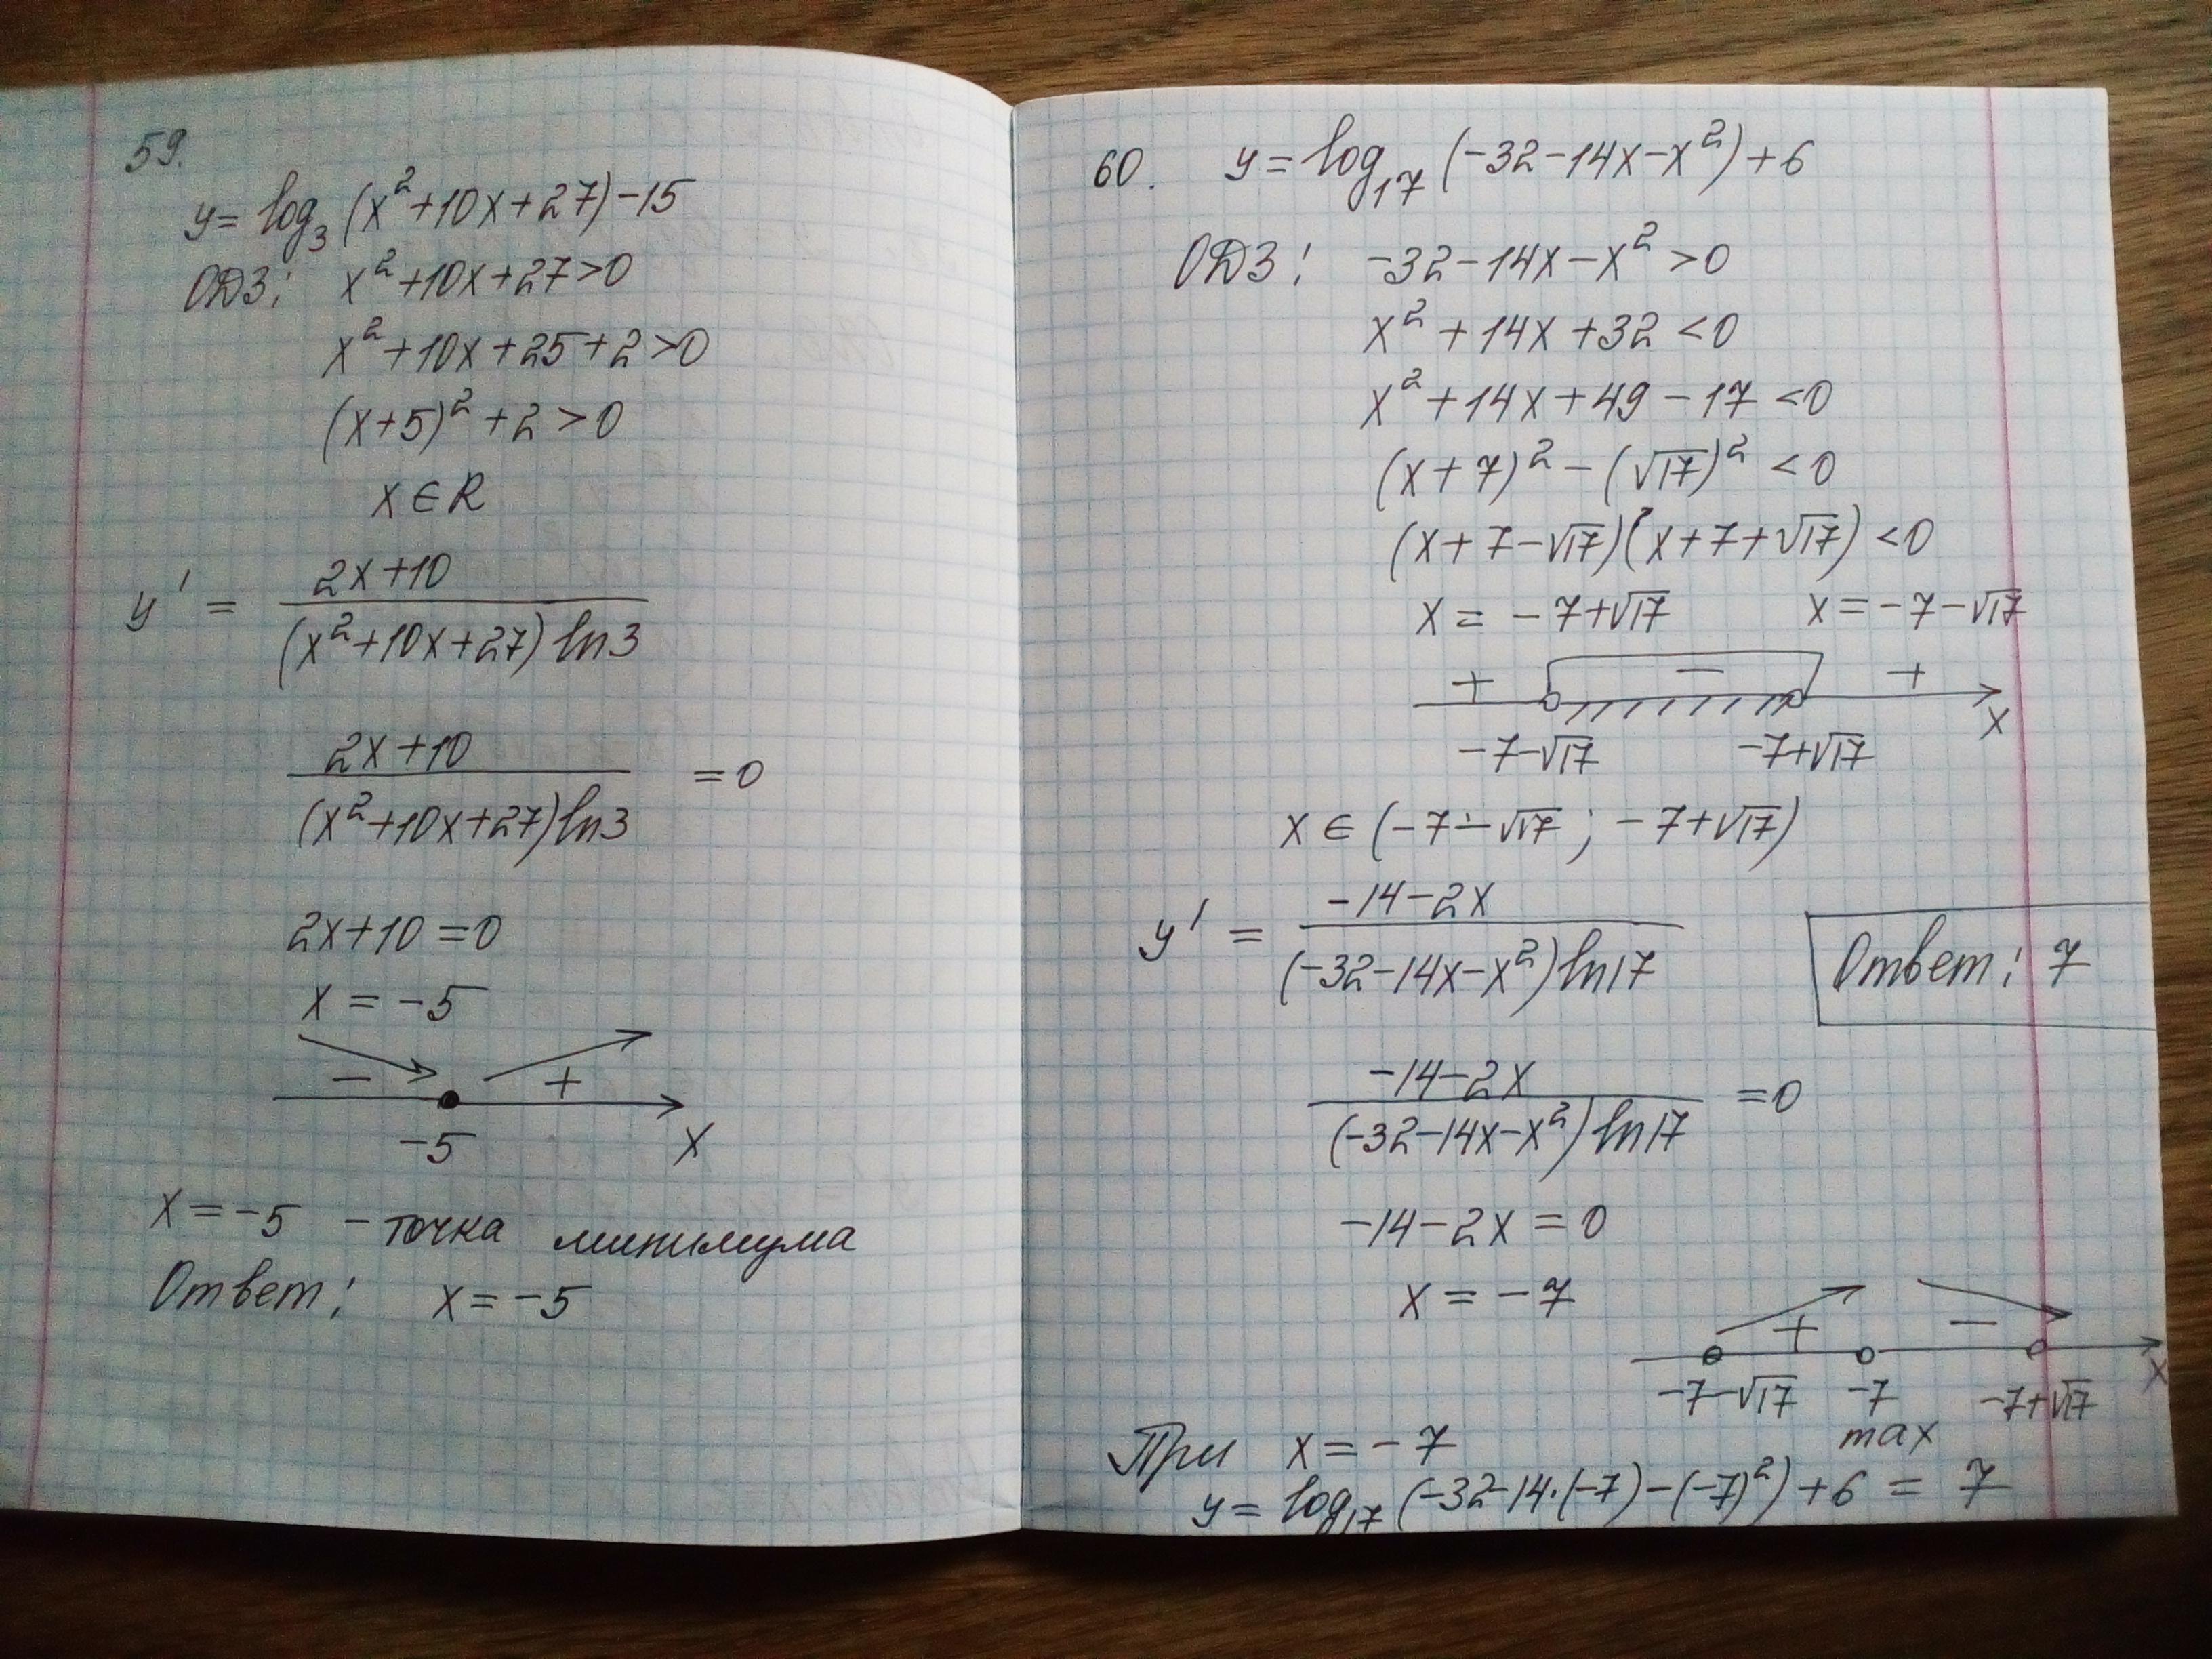 59.
y = log₃ (x² + 10x + 27) - 15
ОДЗ: x² + 10x + 27 > 0
x² + 10x + 25 + 2 > 0
(x + 5)² + 2 > 0
x ∈ R
y' = (2x + 10) / ((x² + 10x + 27) ln 3)
(2x + 10) / ((x² + 10x + 27) ln 3) = 0
2x + 10 = 0
x = -5
- +
-5 x
x = -5 - точка минимума
Ответ: x = -5
60. y = log₁₇ (-32 - 14x - x²) + 6
ОДЗ: -32 - 14x - x² > 0
x² + 14x + 32 < 0
x² + 14x + 49 - 17 < 0
(x + 7)² - (√17)² < 0
(x + 7 - √17)(x + 7 + √17) < 0
x = -7 + √17 x = -7 - √17
+ - +
-7-√17 -7+√17 x
x ∈ (-7 - √17 ; -7 + √17)
y' = (-14 - 2x) / ((-32 - 14x - x²) ln 17)
Ответ: 7
(-14 - 2x) / ((-32 - 14x - x²) ln 17) = 0
-14 - 2x = 0
x = -7
+ -
-7-√17 -7 -7+√17 x
max
При x = -7
y = log₁₇ (-32 - 14·(-7) - (-7)²) + 6 = 7